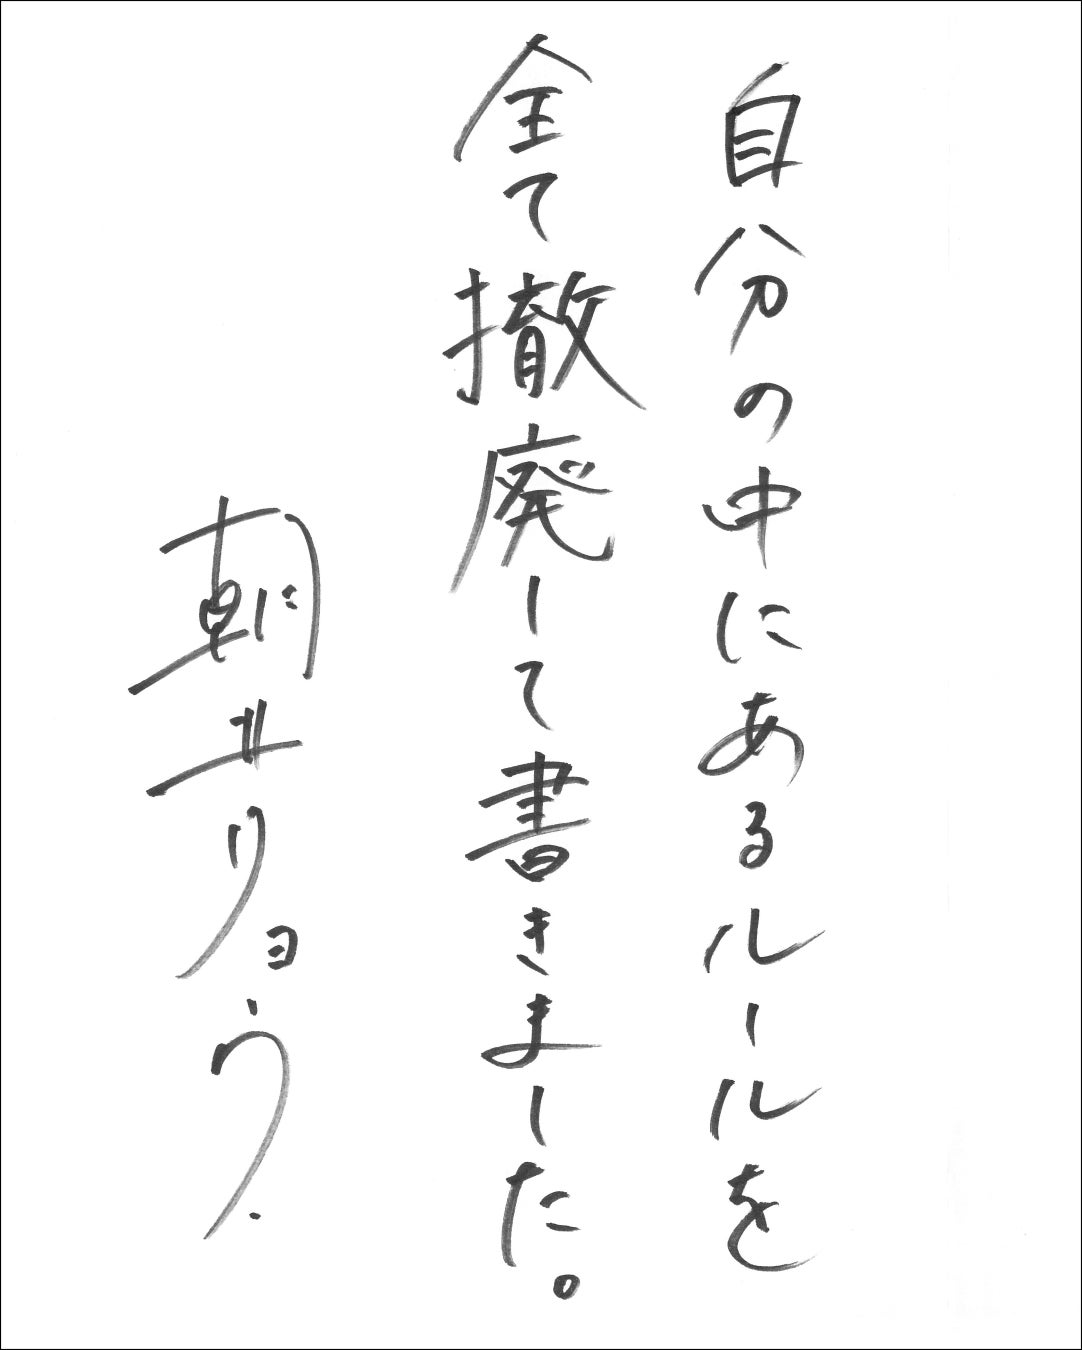 自分の中にあるルールを
全て撤廃して書きました。
朝井リョウ